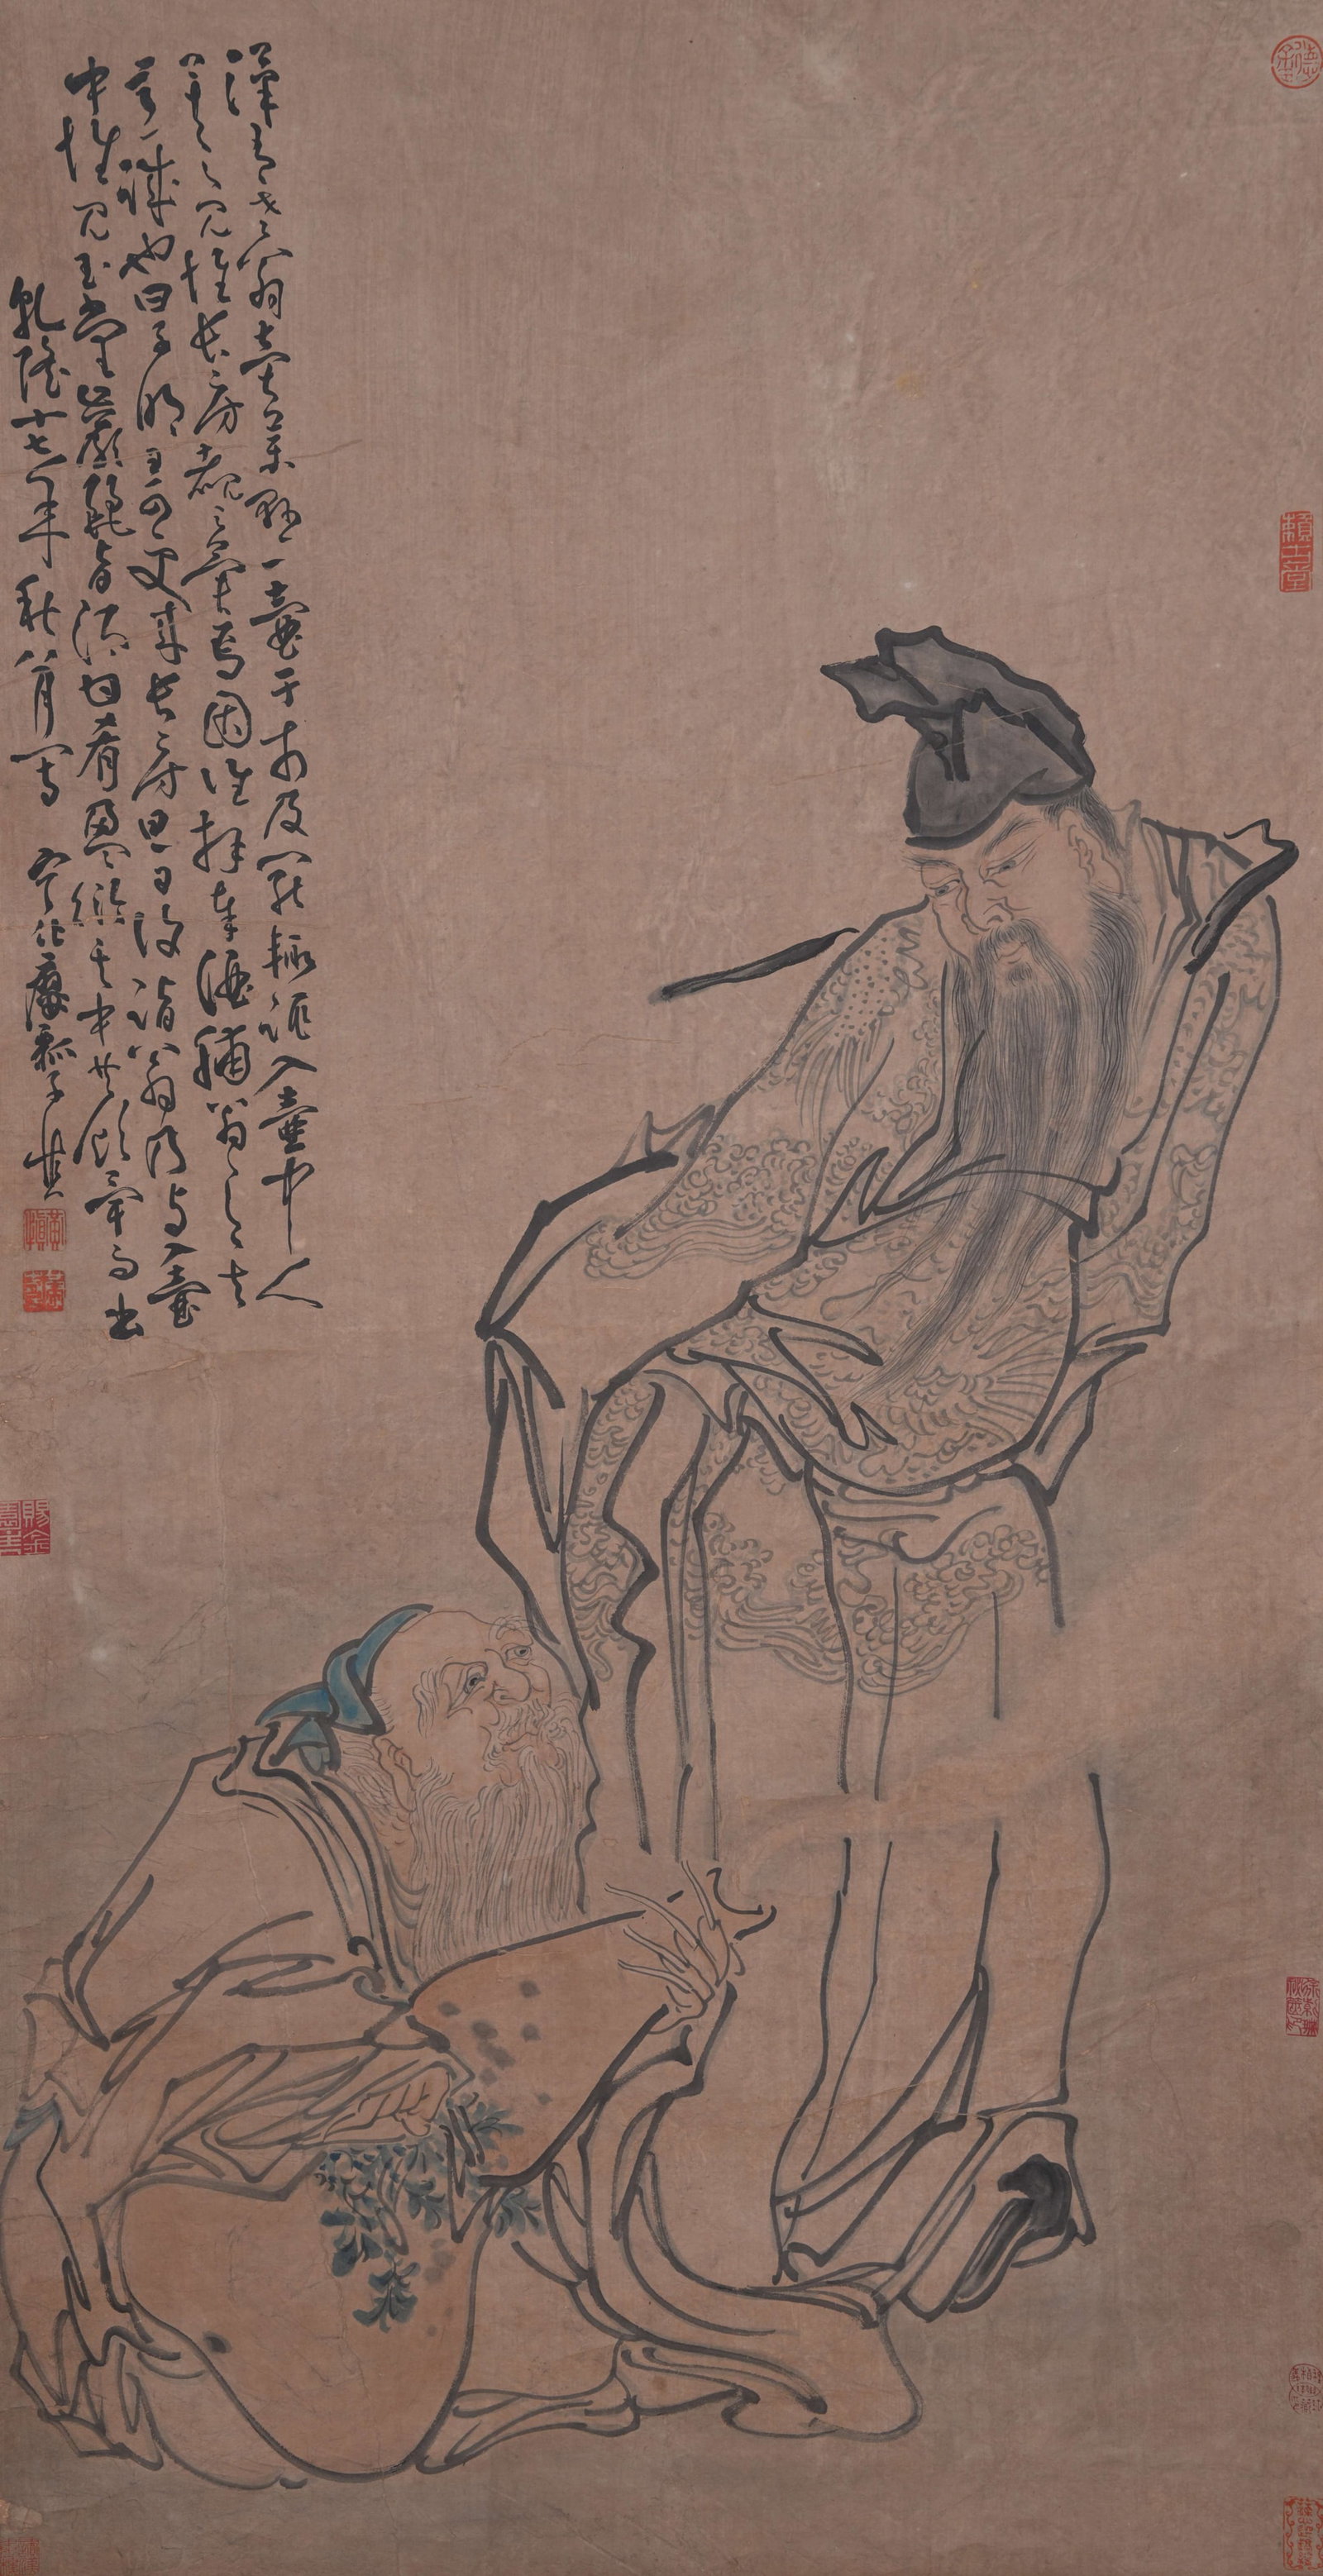 漢有老翁賣藥懸一壺于市及罷輒跳入壺中人
莫之見惟長房覩之異焉因往拜奉酒脯翁
也曰子明日可更來長房旦日復詣翁乃與入壺
中惟見玉堂嚴麗旨酒甘肴盈衍其中共飲畢而出
乾隆十七年秋八月寫 寧化癭瓢子慎
黃慎